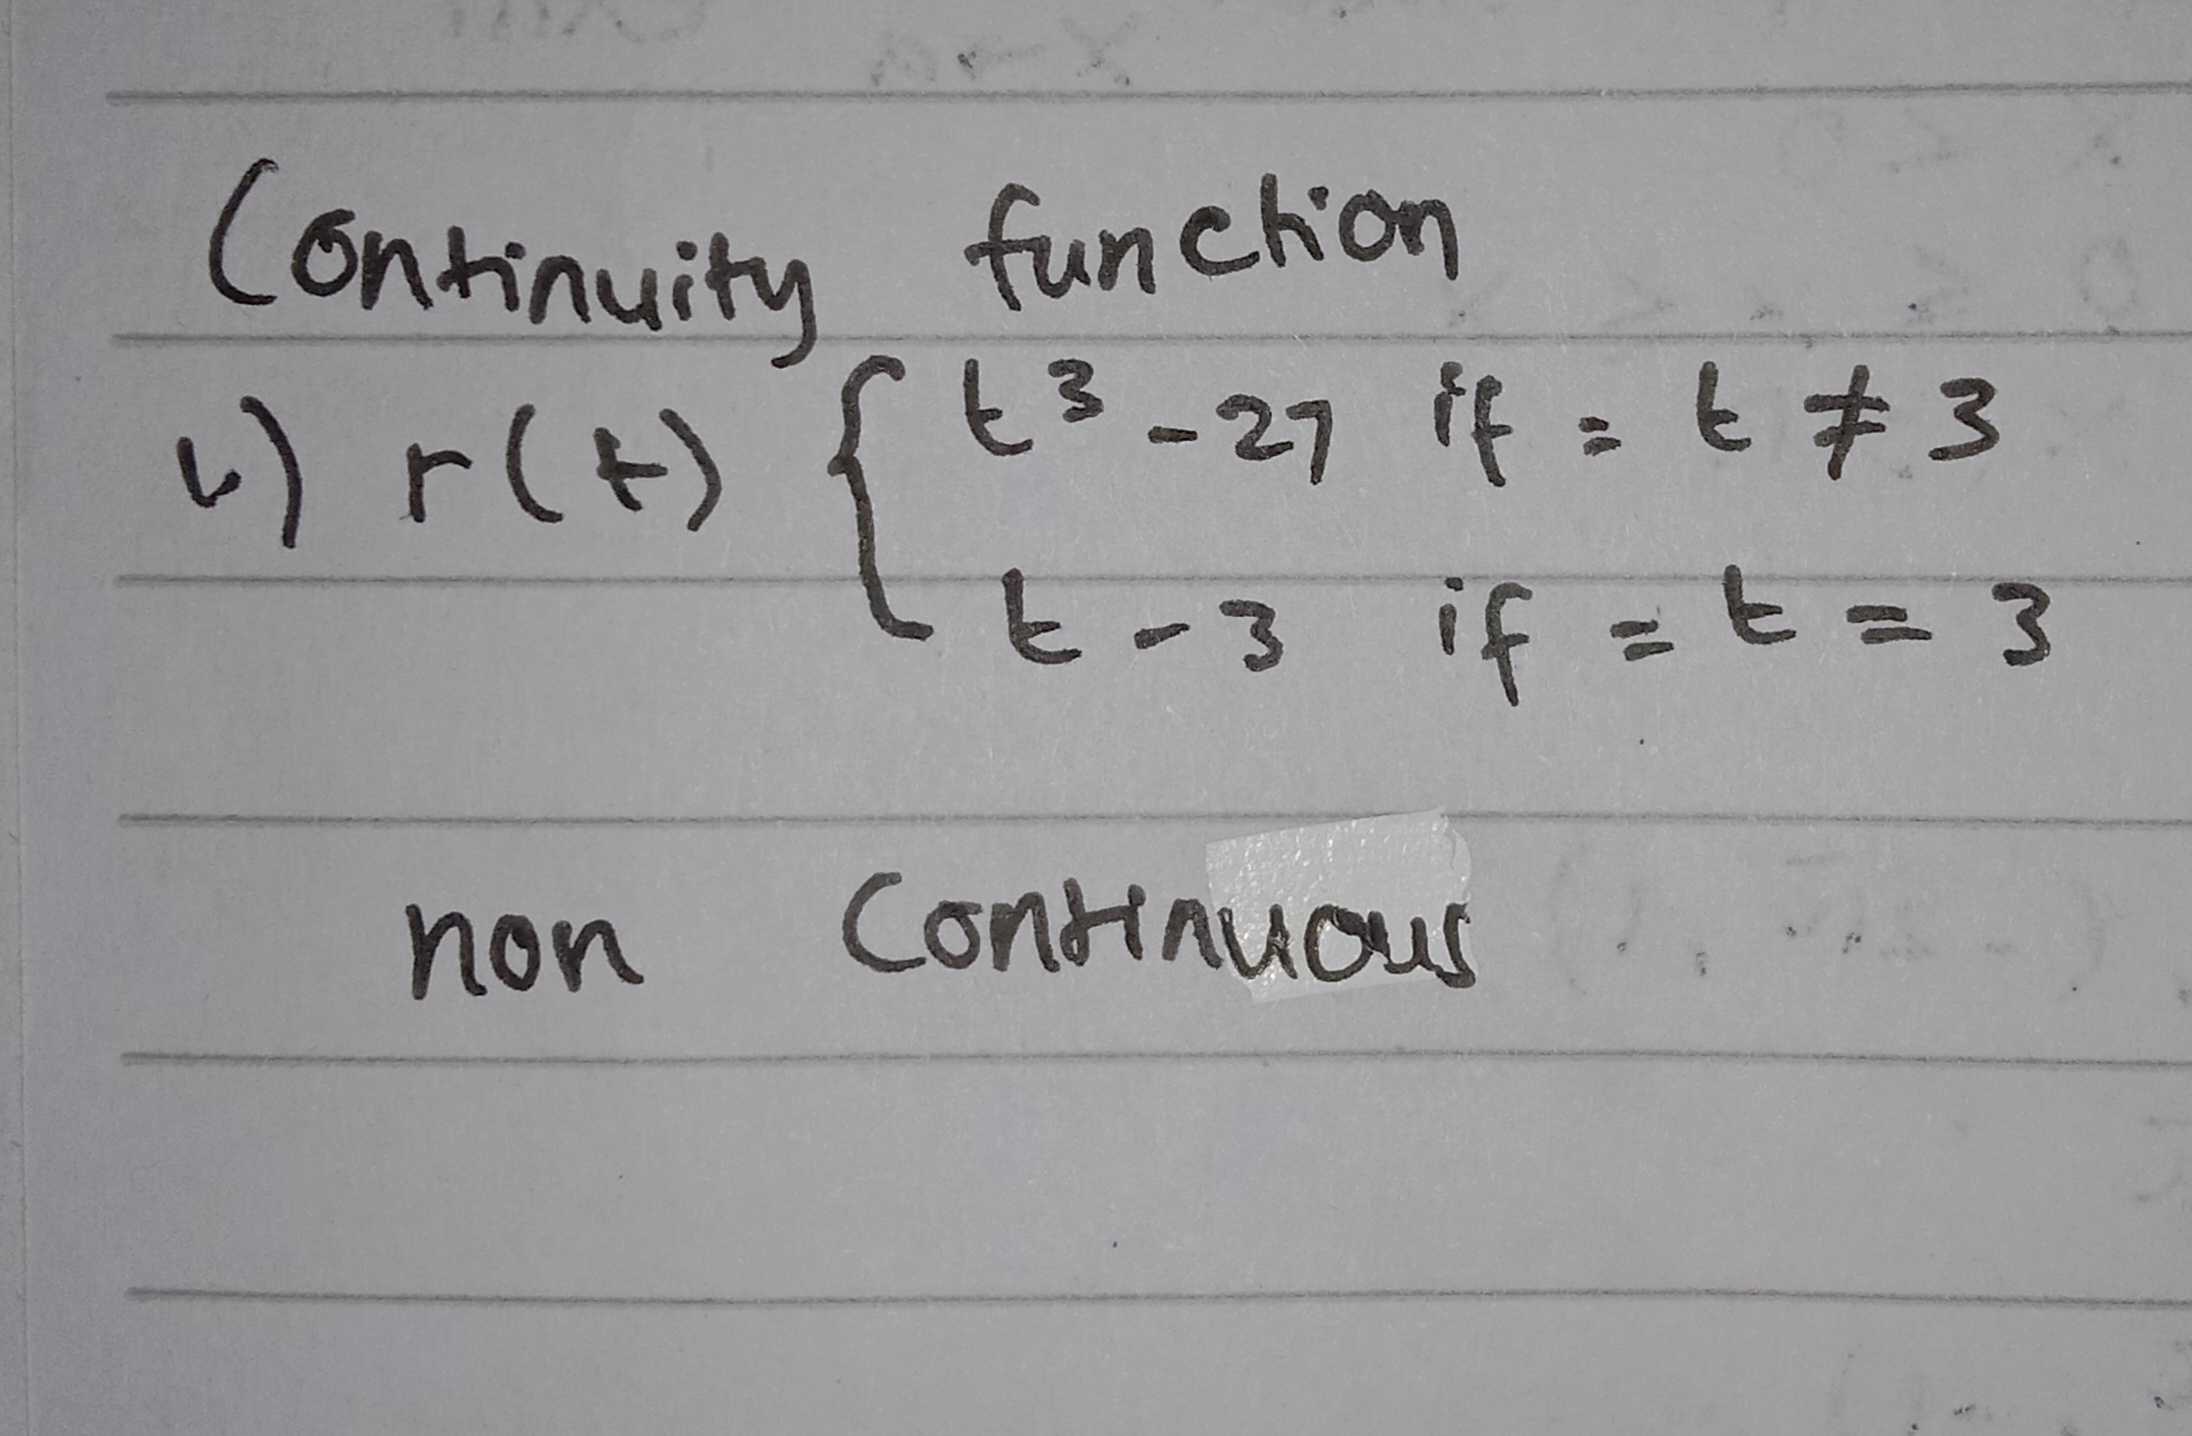 Continuity function
b) r(t) { t³ - 27 if = t ≠ 3
t - 3 if = t = 3
non Continuous